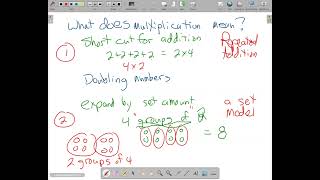 What does multiplication mean?
① short cut for addition Repeated Addition
2+2+2+2 = 2x4
4x2
Doubling numbers
expand by set amount a set model
② 4 "groups of" 2
= 8
2 groups of 4